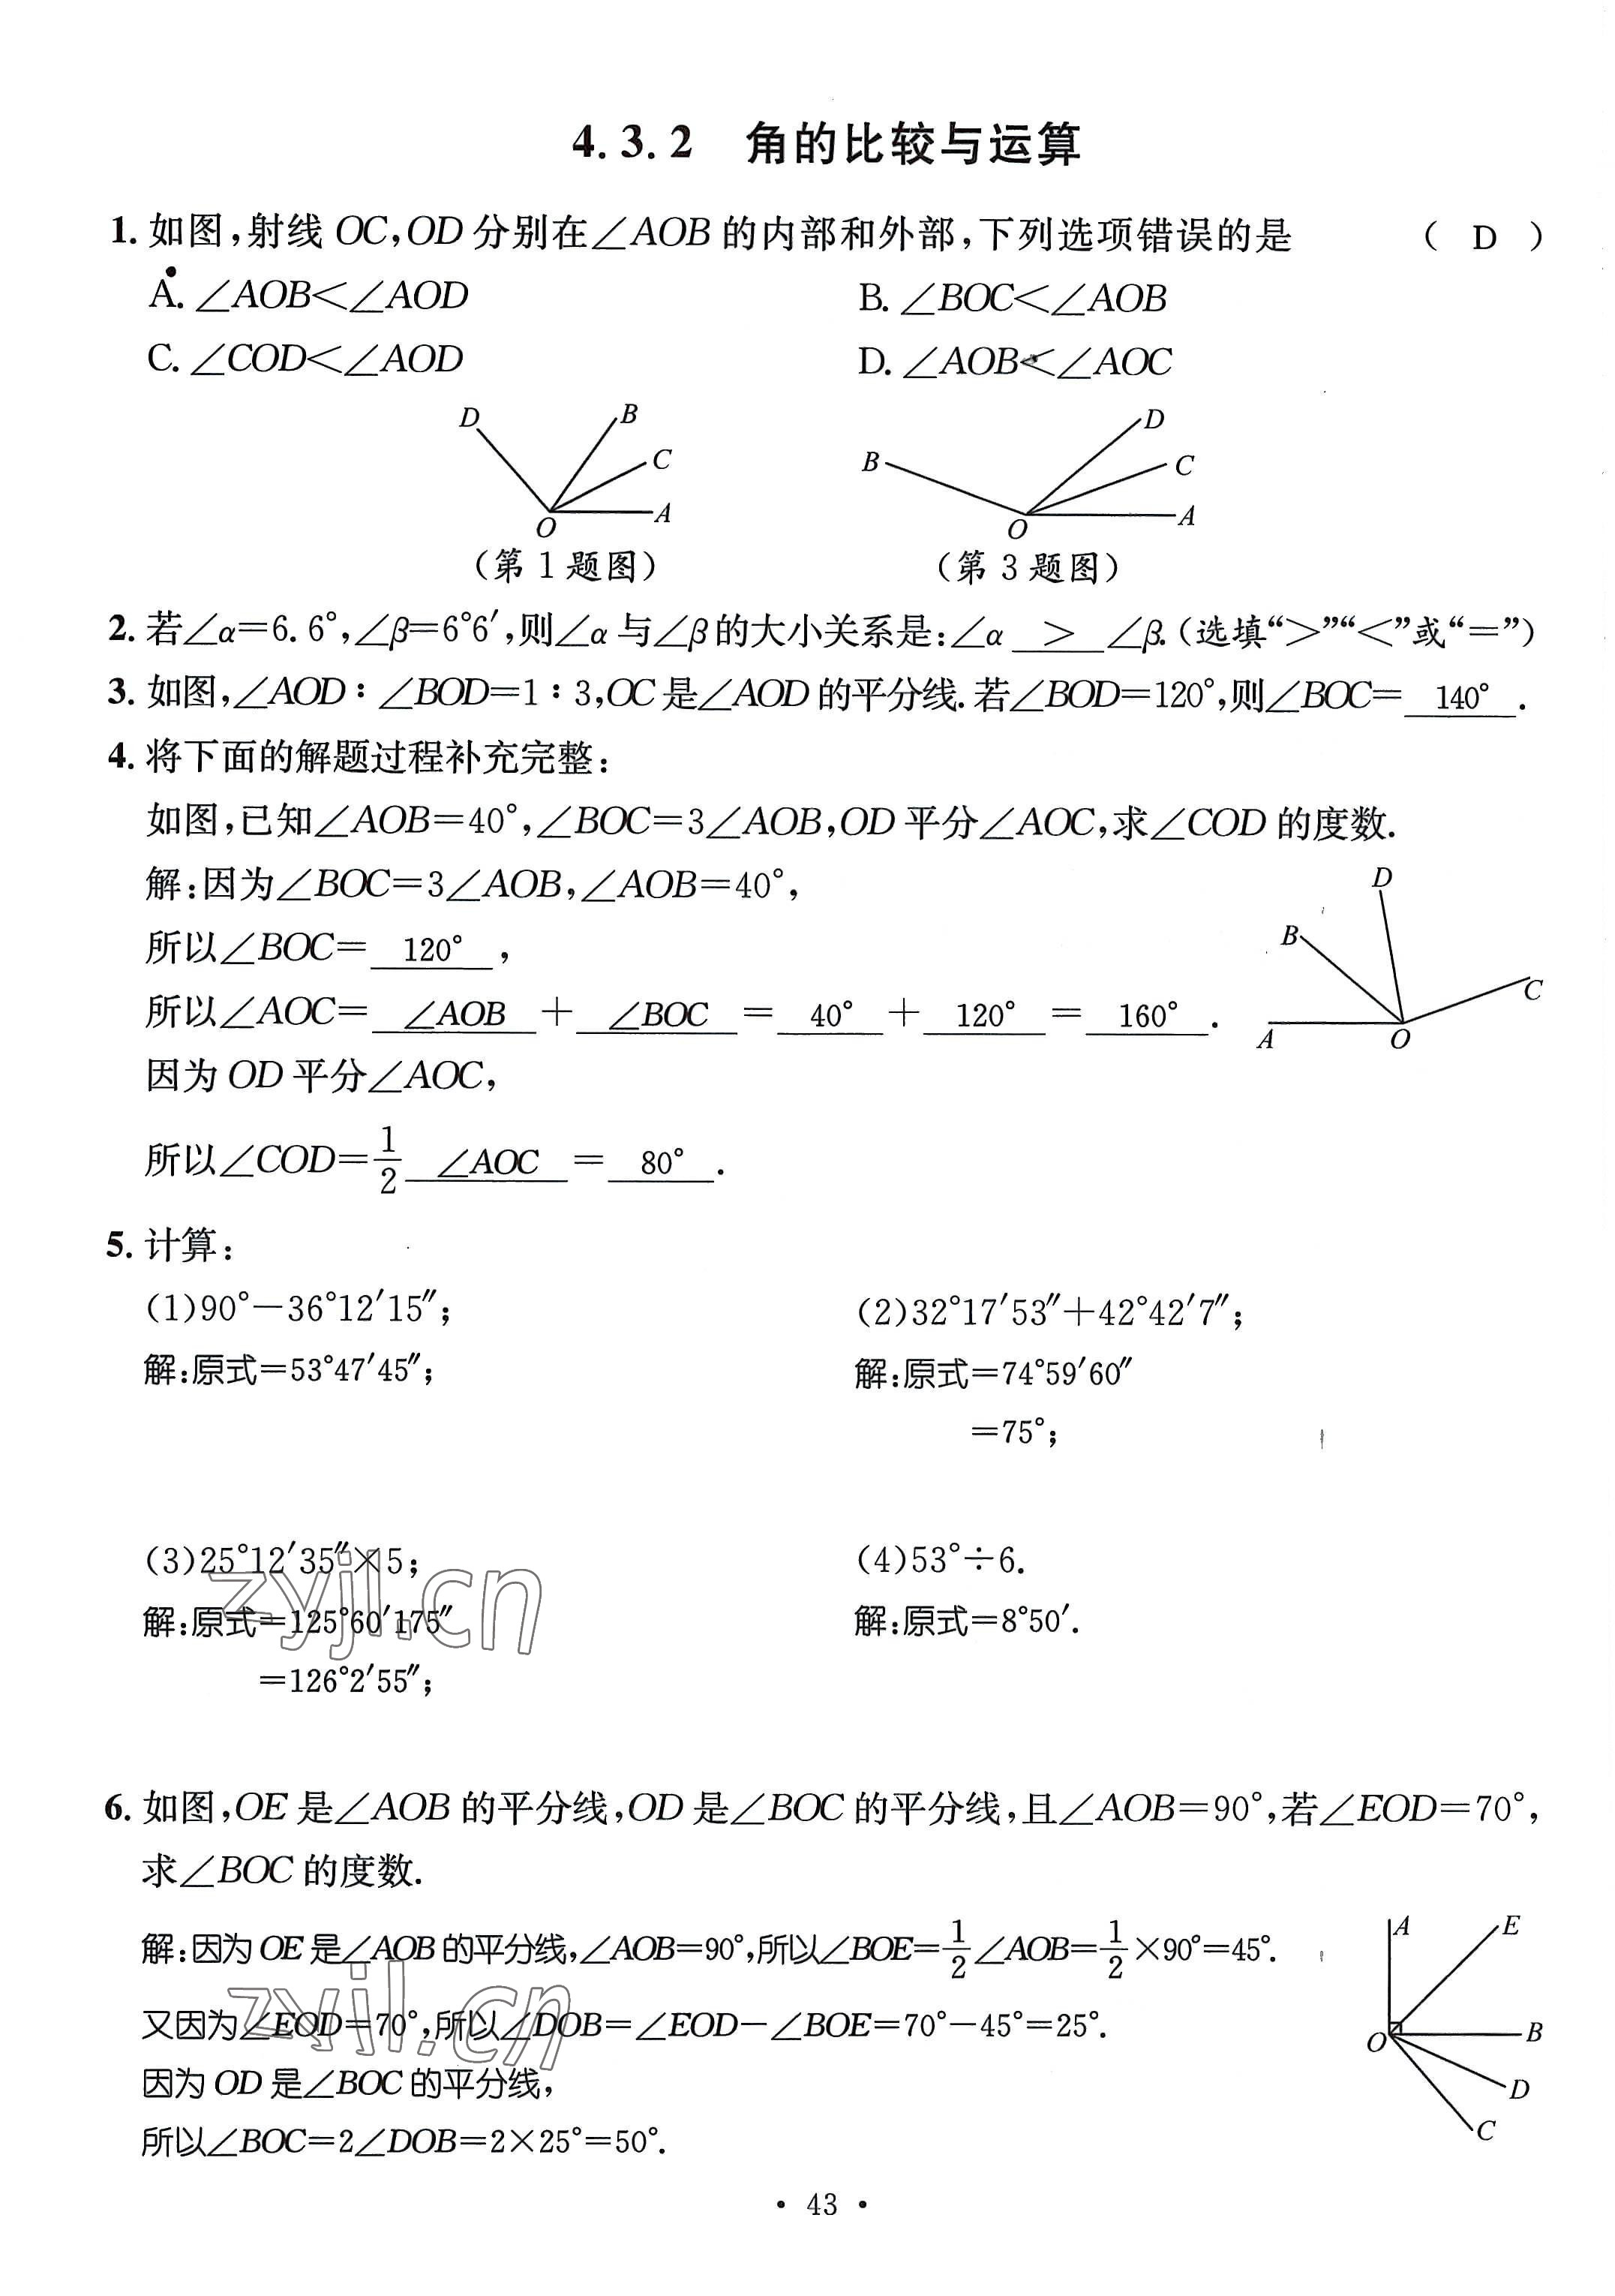 4.3.2 角的比较与运算
1. 如图,射线 OC,OD 分别在∠AOB 的内部和外部,下列选项错误的是 ( D )
A. ∠AOB<∠AOD B. ∠BOC<∠AOB
C. ∠COD<∠AOD D. ∠AOB<∠AOC
D B C A O
B D C A O
(第 1 题图) (第 3 题图)
2. 若∠α=6.6°,∠β=6°6′,则∠α 与∠β 的大小关系是:∠α > ∠β.(选填“>”“<”或“=”)
3. 如图,∠AOD∶∠BOD=1∶3,OC 是∠AOD 的平分线.若∠BOD=120°,则∠BOC= 140° .
4. 将下面的解题过程补充完整:
如图,已知∠AOB=40°,∠BOC=3∠AOB,OD 平分∠AOC,求∠COD 的度数.
解:因为∠BOC=3∠AOB,∠AOB=40°,
所以∠BOC= 120° ,
所以∠AOC= ∠AOB + ∠BOC = 40° + 120° = 160° .
因为 OD 平分∠AOC,
所以∠COD=1/2 ∠AOC = 80° .
D B C A O
5. 计算:
(1)90°-36°12′15″; (2)32°17′53″+42°42′7″;
解:原式=53°47′45″; 解:原式=74°59′60″
=75°;
(3)25°12′35″×5; (4)53°÷6.
解:原式=125°60′175″ 解:原式=8°50′.
=126°2′55″;
zyjl.cn
6. 如图,OE 是∠AOB 的平分线,OD 是∠BOC 的平分线,且∠AOB=90°,若∠EOD=70°,
求∠BOC 的度数.
解:因为 OE 是∠AOB 的平分线,∠AOB=90°,所以∠BOE=1/2∠AOB=1/2×90°=45°.
又因为∠EOD=70°,所以∠DOB=∠EOD-∠BOE=70°-45°=25°.
因为 OD 是∠BOC 的平分线,
所以∠BOC=2∠DOB=2×25°=50°.
A E O B D C
zyjl.cn
· 43 ·